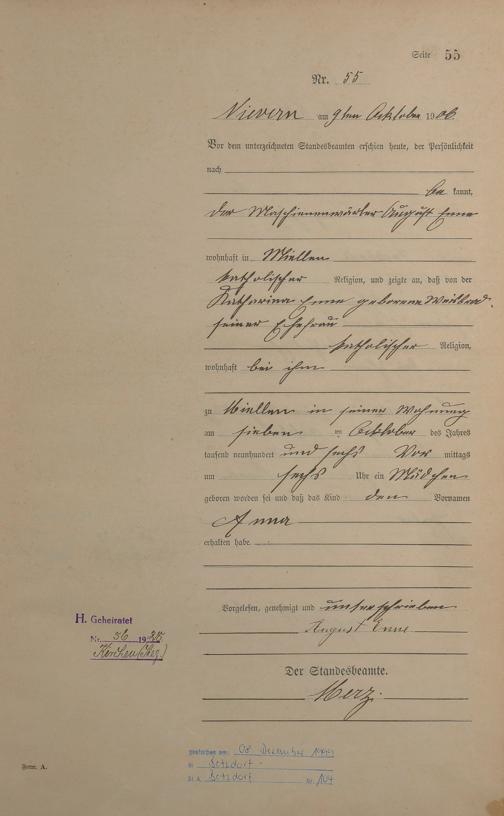 Seite 55
Nr. 55
Nievern am 9ten Oktober 1906.
Vor dem unterzeichneten Standesbeamten erschien heute, der Persönlichkeit
nach
be kannt,
der Maschienenwärter August Enne
wohnhaft in Miellen
katholischer Religion, und zeigte an, daß von der
Katharina Enne geborene
seiner Ehefrau
katholischer Religion,
wohnhaft bei ihm
zu Miellen in seiner Wohnung
am sieben ten Oktober des Jahres
tausend neunhundert und sechs Vor mittags
um sechs Uhr ein Mädchen
geboren worden sei und daß das Kind den Vornamen
Anna
erhalten habe.
Vorgelesen, genehmigt und unterschrieben
August Enne
Der Standesbeamte.
Merz.
H. Geheiratet
Nr. 36 19
gestorben am: 08. Dezember
in Betzdorf
St.A. Betzdorf Nr.
Form. A.